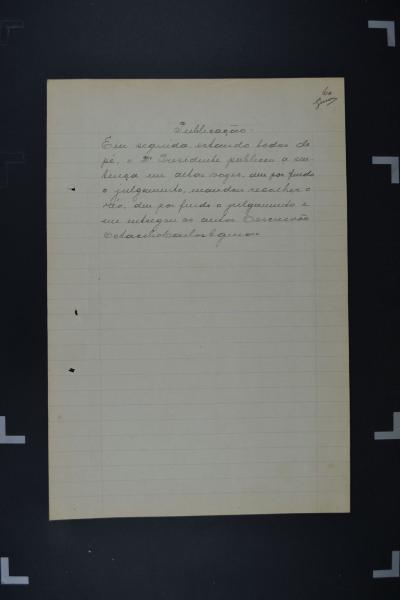 Publicação.
Em seguida estando todos de
pé, o Dr Presidente publicou a sen-
tença em altas vozes, deu por findo
o julgamento, mandou recolher o
réo, deu por findo o julgamento e
me entregou os autos. Eu escrivão
Octacilio Carlos